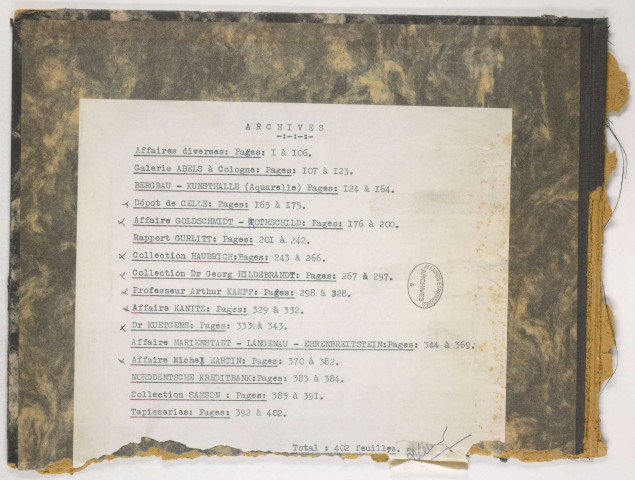 ARCHIVES
-:-:-:-
Affaires diverses: Pages: I à I06.
Galerie ABELS à Cologne: Pages: I07 à I23.
BERGBAU - KUNSTHALLE (Aquarelle) Pages: I24 à I64.
Dépot de CELLE: Pages: I65 à I75.
Affaire GOLDSCHMIDT - ROTHSCHILD: Pages: I76 à 200.
Rapport GURLITT: Pages: 201 à 242.
Collection HAUBRICH:Pages: 243 à 266.
Collection Dr Georg HILDEBRANDT: Pages: 267 à 297.
Professeur Arthur KAMPF: Pages: 298 à 328.
Affaire KANITZ: Pages: 329 à 332.
Dr KUETGENS: Pages: 333à 343.
Affaire MARIENSTADT - LANGENAU - EHRENBREITSTEIN:Pages: 344 à 369.
Affaire Michel MARTIN: Pages: 370 à 382.
NORDDENTSCHE KREDITBANK:Pages: 383 à 384.
Collection SAMSON : Pages: 385 à 391.
Tapisseries: Pages: 392 à 402.
Total : 402 feuilles.
ARCHIVES